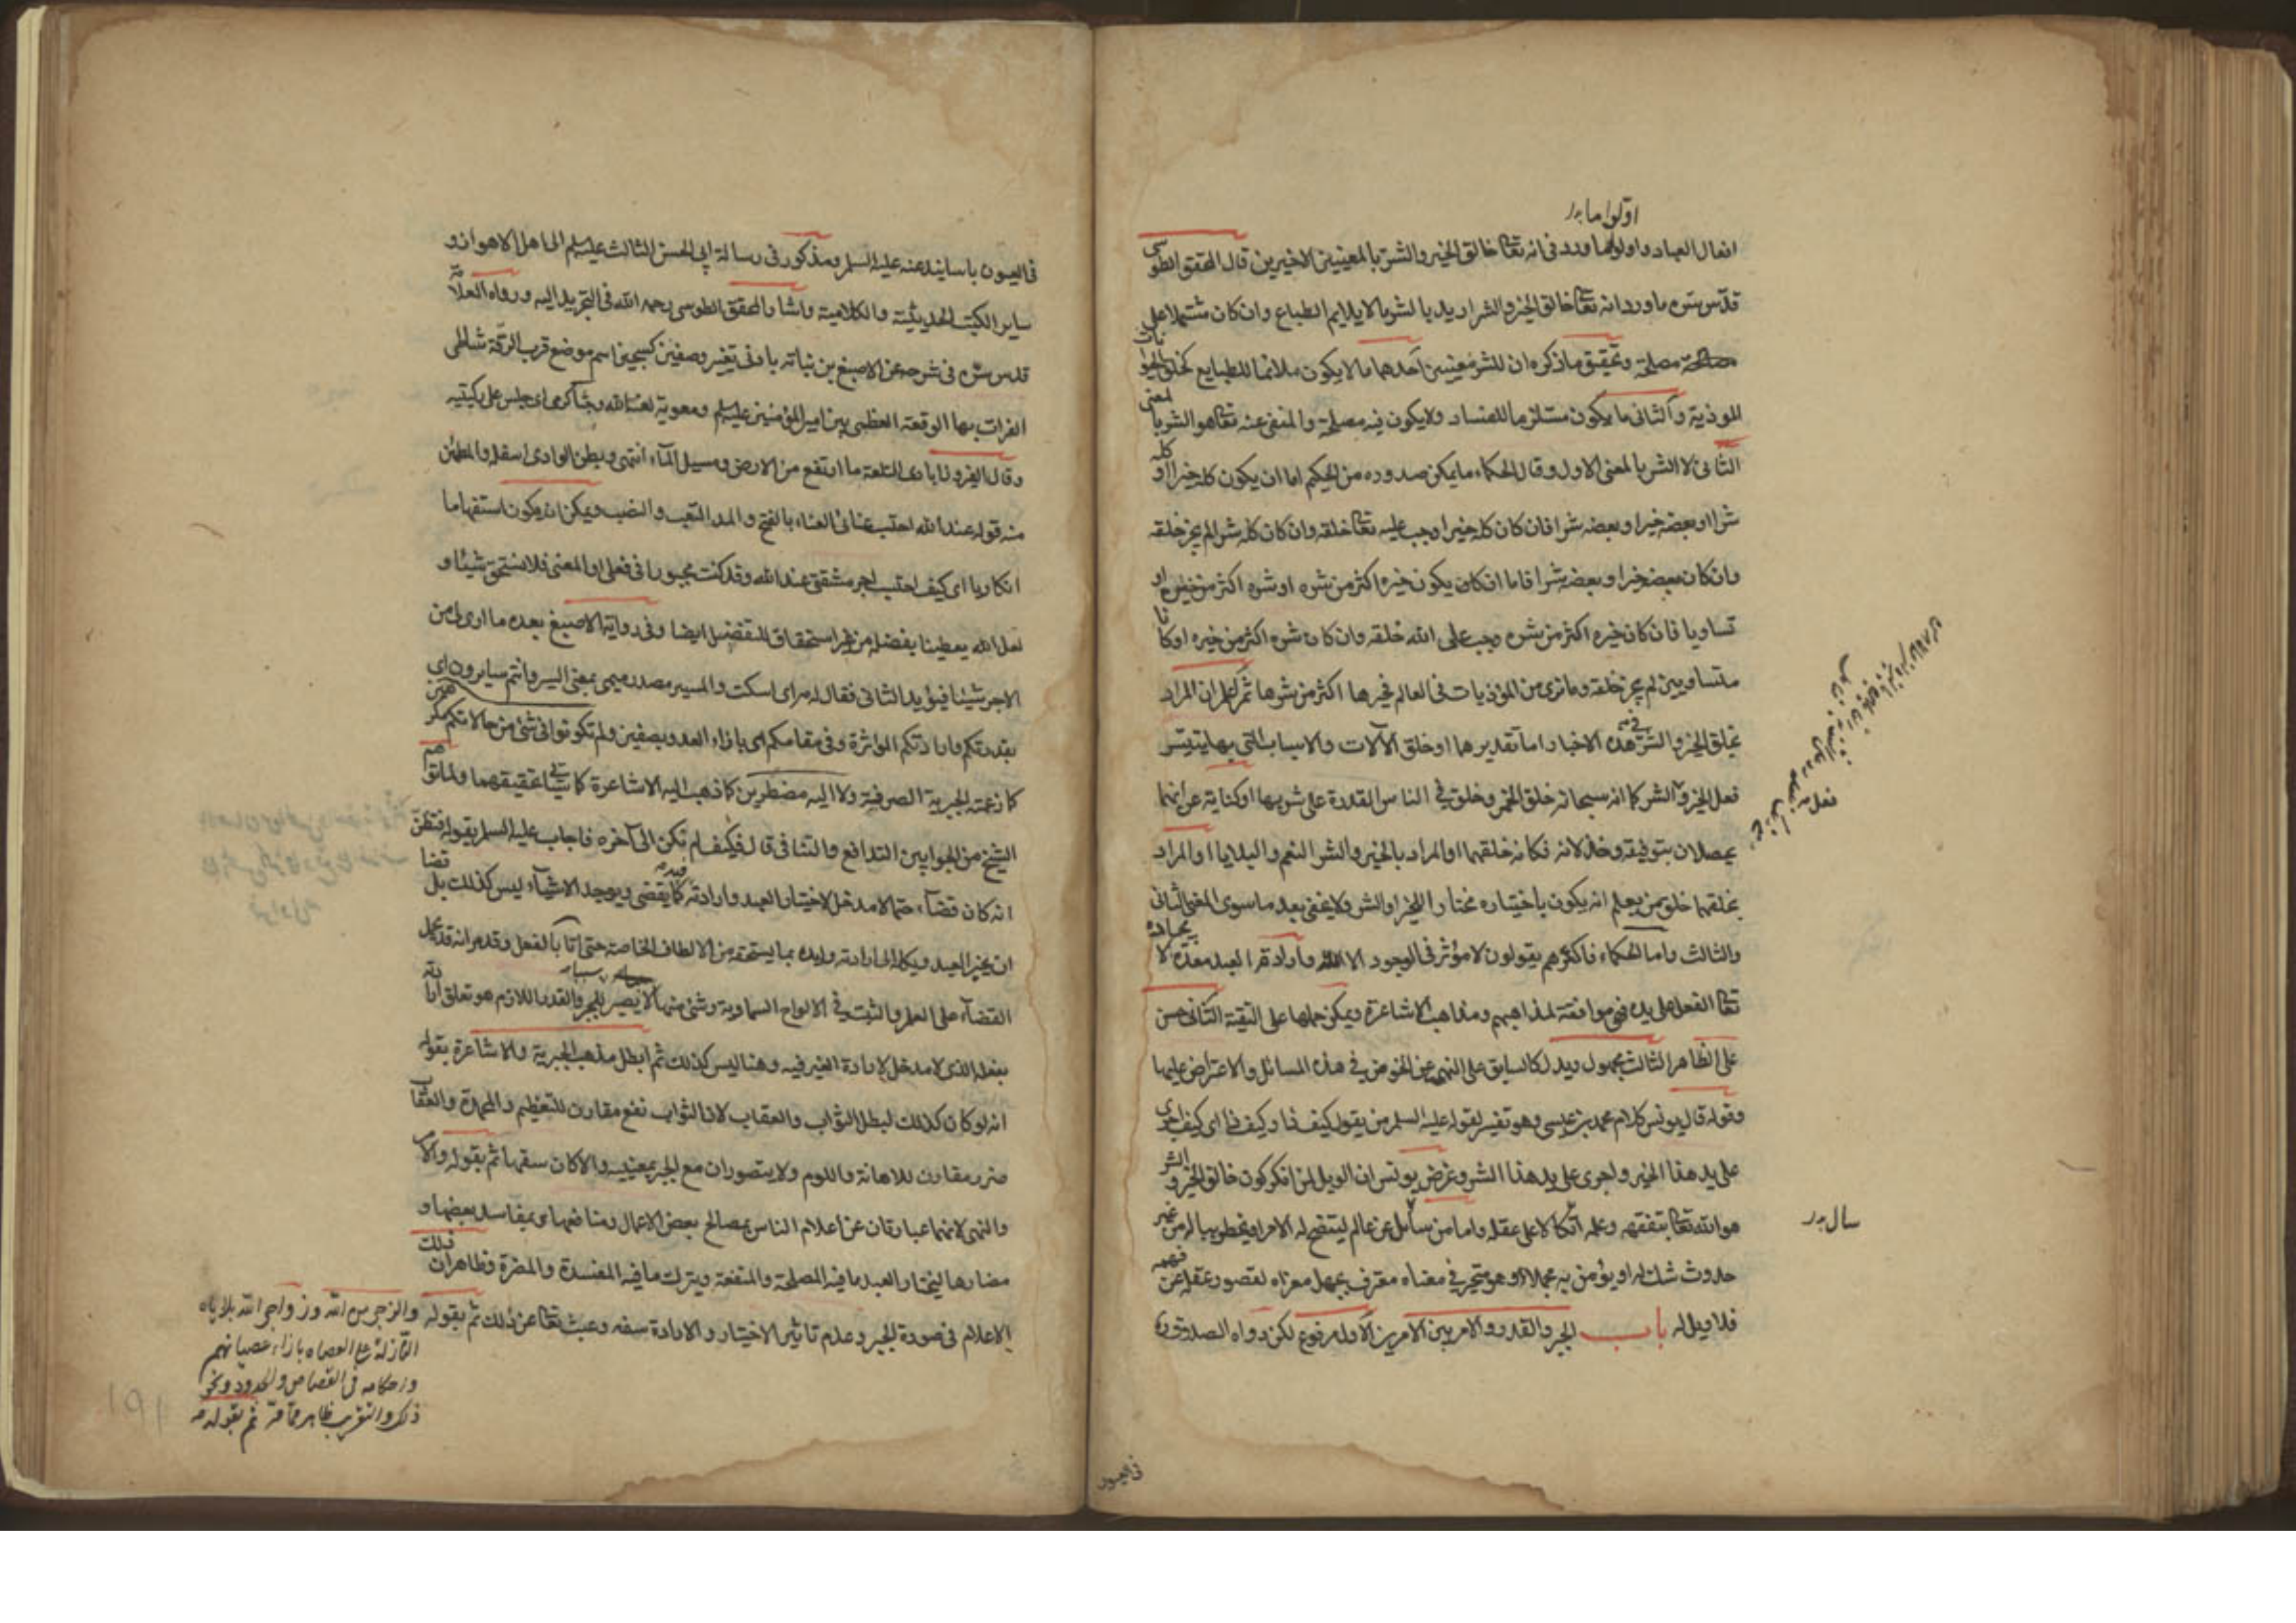 اولوا ما بدر
افعال العباد واولوها ورد فی انه تعالی خالق الخیر والشر بالمعنیین الاخیرین قال المحقق الطوسی
قدس سره ما ورد انه تعالی خالق الخیر والشر ارید بالشر ما لا یلایم الطباع وان کان مشتملا علی
مصلحة وتحقیق ما ذکره ان للشر معنیین احدهما ما لا یکون ملائما للطبایع کخلق الحیوانات
الموذیة والثانی ما یکون مستلزما للفساد ولا یکون فیه مصلحة والمنفی عنه تعالی هو الشر بالمعنی
الثانی لا الشر بالمعنی الاول وقال الحکماء ما یمکن صدوره من الحکیم اما ان یکون کله خیرا او کله
شرا او بعضه خیرا وبعضه شرا فان کان کله خیرا وجب علیه تعالی خلقه وان کان کله شرا لم یجز خلقه
وان کان بعضه خیرا وبعضه شرا فاما ان یکون خیره اکثر من شره او شره اکثر من خیره او
تساویا فان کان خیره اکثر من شره وجب علی الله خلقه وان کان شره اکثر من خیره او کانا
متساویین لم یجز خلقه وما نری من الموذیات فی العالم فخیرها اکثر من شرها ثم اعلم ان المراد
بخلق الخیر والشر فی هذه الاخبار اما تقدیرها او خلق الآلات والاسباب التی بها یتیسر
فعل الخیر والشر کما انه سبحانه خلق الخمر وخلق فی الناس القدرة علی شربها او کنایة عن انهما
یحصلان بتوفیقه وخذلانه فکانه خلقهما او المراد بالخیر والشر النعم والبلایا او المراد
بخلقهما خلق من یعلم انه یکون باختیاره مختارا للخیر او الشر ولا یخفی بعد ما سوی المعنی الثانی
والثالث واما الحکماء فاکثرهم یقولون لا مؤثر فی الوجود الا الله وارادة العبد معدة لایجاده
تعالی الفعل علی یده فهی موافقة لمذاهبهم ومذاهب الاشاعرة ویمکن حملها علی التقیة الثانی حسن
علی الظاهر الثالث مجهول ویدل کالسابق علی النهی عن الخوض فی هذه المسائل والاعتراض علیها
وقوله قال یونس کلام محمد بن عیسی وهو تفسیر لقوله علیه السلم من یقول کیف ذا وکیف ذا ای کیف اجری
علی ید هذا الخیر واجری علی ید هذا الشر وغرض یونس ان الویل لمن انکر کون خالق الخیر والشر
هو الله تعالی بتفقهه وعلمه اتکالا علی عقله واما من سأل عن عالم لیتضح له الامر او یخطر بباله من غیر
حدوث شک له او یؤمن به مجملا وهو متحیر فی معناه معترف بجهل معناه لقصور عقله عن فهمه
فلا ویل له باب الجبر والقدر والامر بین الامرین الاول مرفوع لکن رواه الصدوق
سال بدر
فی العیون
فی العیون باسانید عنه علیه السلم ومذکور فی رسالة ابی الحسن الثالث علیه السلم الی اهل الاهواز و
سایر الکتب الحدیثیة والکلامیة واشار المحقق الطوسی رحمه الله فی التجرید الیه ورواه العلامة
قدس سره فی شرحه عن الاصبغ بن نباته بادنی تغییر وصفین کسجین اسم موضع قرب الرقة شاطی
الفرات بها الوقعة العظمی بین امیر المؤمنین علیه السلم ومعویة لعنه الله وجثا کرمی ای جلس علی رکبتیه
وقال الفیروزابادی التلعة ما ارتفع من الارض ومسیل المآء انتهی وبطن الوادی اسفله والمطمئن
منه قوله عند الله احتسب عنائی العناء بالفتح والمد التعب والنصب ویمکن ان یکون استفهاما
انکاریا ای کیف احتسب اجر مشقتی عند الله وقد کنت مجبورا فی فعلی او المعنی فلا نستحق شیئا و
لعل الله یعطینا بفضله من غیر استحقاق للتفضیل ایضا وفی روایة الاصبغ بعده ما اری لی من
الاجر شیئا فیؤید الثانی فقال له مه ای اسکت والمسیر مصدر میمی بمعنی السیر وانتم سایرون ای
بقدرتکم وارادتکم المؤثرة وفی مقامکم ای بازاء العدو بصفین ولم تکونوا فی شئ من حالاتکم مکرهین
کما زعمته الجبریة الصرفة ولا الیه مضطرین کما ذهب الیه الاشاعرة کما سیأتی تحقیقهما ولما توهم
الشیخ من الجوابین التدافع والتنافی قال فکیف لم نکن الی آخره فاجاب علیه السلم بقوله فتظن
انه کان قضاء حتما لا مدخل لاختیار العبد وارادته فیه کما یقضی ویوجد الاشیآء لیس کذلک بل قضا
ان یخیر العبد ویکله الی ارادته وایده بما یستحقه من الالطاف الخاصة حتی اتا بالفعل وقد مر انه قد یحمل
القضاء علی العلم والثبت فی الالواح السماویة وشئ منها لا یصیر سببا للجبر والقدر اللازم هو تعلق ارادته
بفعله الذی لا مدخل لارادة الغیر فیه وهنا لیس کذلک ثم ابطل مذهب الجبریة والاشاعرة بقوله
انه لو کان کذلک لبطل الثواب والعقاب لان الثواب نفع مقارن للتعظیم والمحمدة والعقاب
ضرر مقارن للاهانة واللوم ولا یتصوران مع الجبر بمعنییه والا کان سفها ثم بقوله والامر
والنهی لانهما عبارتان عن اعلام الناس بمصالح بعض الاعمال ومنافعها وبمفاسد بعضها و
مضارها لیختار العبد ما فیه المصلحة والمنفعة ویترک ما فیه المفسدة والمضرة وظاهر ان ذلک
الاعلام فی صورة الجبر وعدم تاثیر الاختیار والارادة سفه وعبث تعالی عن ذلک ثم بقوله
والزجر من الله وزواجر الله بلایاه
النازلة علی العصاه بازاء عصیانهم
واحکامه فی القصاص والحدود ونحو
ذلک والتقریب ظاهر مما مر ثم بقوله
191